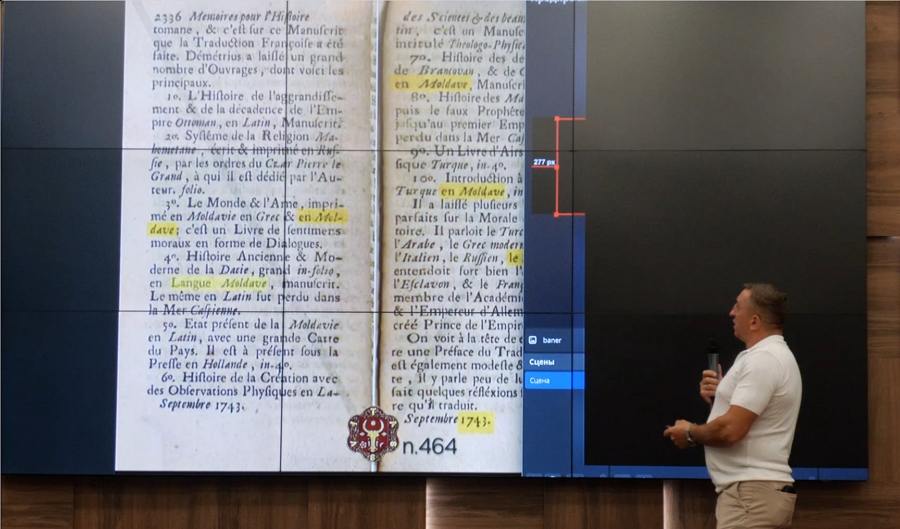 2336 Memoires pour l'Histoire
tomane, & c'est sur ce Manuscrit
que la Traduction Françoise a été
faite. Démétrius a laissé un grand
nombre d'Ouvrages, dont voici les
principaux.
1o. L'Histoire de l'aggrandisse-
ment & de la décadence de l'Em-
pire Ottoman, en Latin, Manuscrit.
2o. Systême de la Religion Ma-
hometane, écrit & imprimé en Rus-
sie, par les ordres du Czar Pierre le
Grand, à qui il est dédié par l'Au-
teur. folio.
3o. Le Monde & l'Ame, impri-
mé en Moldavie en Grec & en Mol-
dave; c'est un Livre de sentimens
moraux en forme de Dialogues.
4o. Histoire Ancienne & Mo-
derne de la Dacie, grand in-folio,
en Langue Moldave, manuscrit.
Le même en Latin fut perdu dans
la Mer Caspienne.
5o. Etat présent de la Moldavie
en Latin, avec une grande Carte
du Pays. Il est à présent sous la
Presse en Hollande, in-4o.
6o. Histoire de la Création avec
des Observations Physiques en La-
Septembre 1743.
des Sciences & des beau
tin, c'est un Manus
intitulé Theologo-Physi
7o. Histoire des
de Brancovan, & de C
en Moldave, Manuscri
8o. Histoire des Ma
puis le faux Prophète
jusqu'au premier Emp
perdu dans la Mer Cas
9o. Un Livre d'Airs
sique Turque, in-4o.
10o. Introduction à
Turque en Moldave, in
Il a laissé plusieurs
parfaits sur la Morale
toire. Il parloit le Turc
l'Arabe, le Grec modern
l'Italien, le Russien, le
entendoit fort bien l'
l'Esclavon, & le Franç
membre de l'Académi
& l'Empereur d'Allem
créé Prince de l'Empir
On voit à la tête de c
re une Préface du Trad
est également modeste &
te, il y parle peu de lu
fait quelques réfléxions
re qu'il traduit.
Septembre 1743.
n.464
277 px
baner
Сцены
Сцена